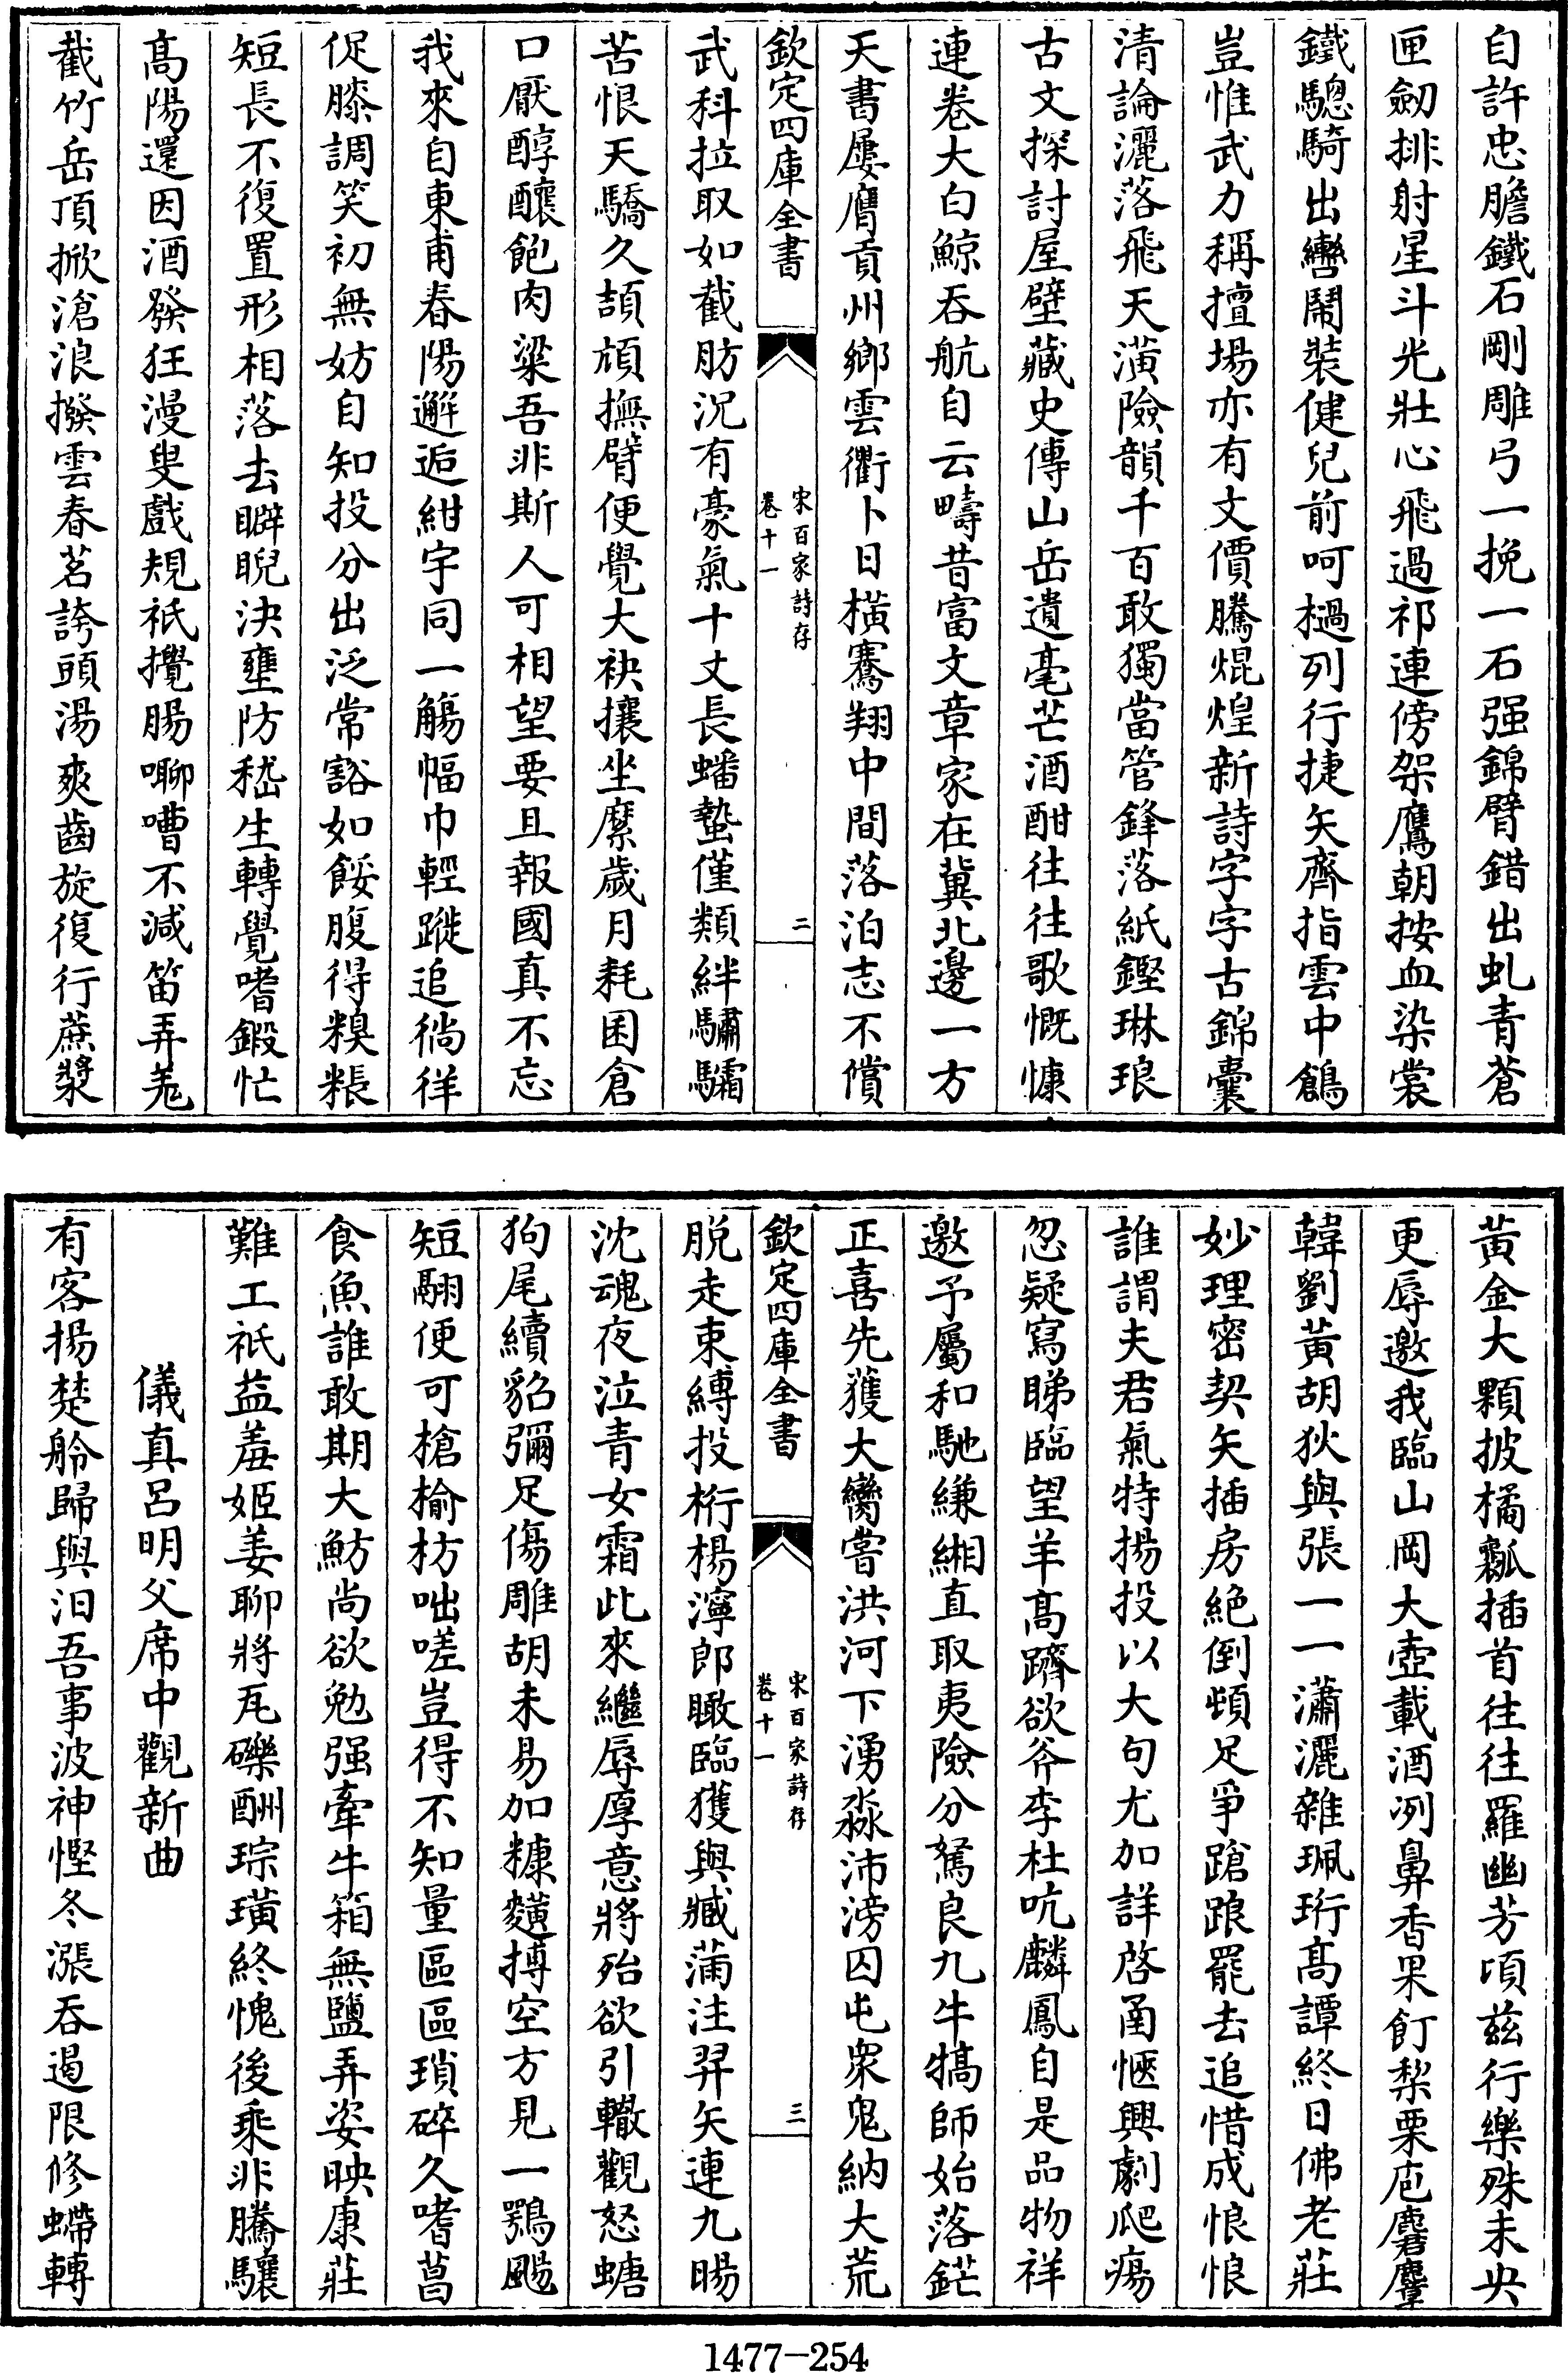 自許忠膽鐵石剛雕弓一挽一石强錦臂錯出虬青蒼
匣劒排射星斗光壯心飛過祁連傍架鷹朝按血染裳
鐵驄騎出轡鬧裝健兒前呵檛列行捷矢齊指雲中鶬
豈惟武力稱擅塲亦有文價騰焜煌新詩字字古錦囊
清論灑落飛天潢險韻千百敢獨當管鋒落紙鏗琳琅
古文探討屋壁藏史傳山岳遺毫芒酒酣往往歌慨慷
連卷大白鯨吞航自云疇昔富文章家在冀北邊一方
天書屢膺貢州鄉雲衢卜日橫騫翔中間落泊志不償
欽定四庫全書
宋百家詩存
卷十一
二
武科拉取如截肪況有豪氣十丈長蟠蟄僅類絆驌驦
苦恨天驕久頡頏撫臂便覺大袂攘坐縻歲月耗囷倉
口厭醇醲飽肉粱吾非斯人可相望要且報國真不忘
我來自東甫春陽邂逅紺宇同一觴幅巾輕蹤追徜徉
促膝調笑初無妨自知投分出泛常豁如餒腹得糗粻
短長不復置形相落去睥睨決壅防嵇生轉覺嗜鍛忙
髙陽還因酒發狂漫叟戲規祇攪腸啣嘈不減笛弄羗
截竹岳頂掀滄浪撥雲春茗誇頭湯爽齒旋復行蔗漿
黃金大顆披橘瓤插首往往羅幽芳頃兹行樂殊未央
更辱邀我臨山岡大壺載酒冽鼻香果飣棃栗庖麏麞
韓劉黃胡狄與張一一瀟灑雜珮珩髙譚終日佛老莊
妙理密契矢插房絕倒頓足爭蹌踉罷去追惜成悢悢
誰謂夫君氣特揚投以大句尤加詳啓函愜興劇爬瘍
忽疑寫睇臨望羊髙躋欲斧李杜吭麟鳳自是品物祥
邀予屬和馳縑緗直取夷險分駑良九牛犒師始落鋩
正喜先獲大臠嘗洪河下湧淼沛滂囚屯衆鬼納大荒
欽定四庫全書
宋百家詩存
卷十一
三
脱走束縛投桁楊濘郎瞰臨獲與臧蒲注羿矢連九暘
沈魂夜泣青女霜此來繼辱厚意將殆欲引轍觀怒螗
狗尾續貂彌足傷雕胡未易加糠䵃搏空方見一鶚颺
短翮便可槍榆枋咄嗟豈得不知量區區瑣碎久嗜菖
食魚誰敢期大魴尚欲勉强牽牛箱無鹽弄姿映康莊
難工祇益羞姬姜聊將瓦礫酬琮璜終愧後乘非騰驤
儀真呂明父席中觀新曲
有客揚楚舲歸與汨吾事波神慳冬漲吞遏限修螮轉
1477-254